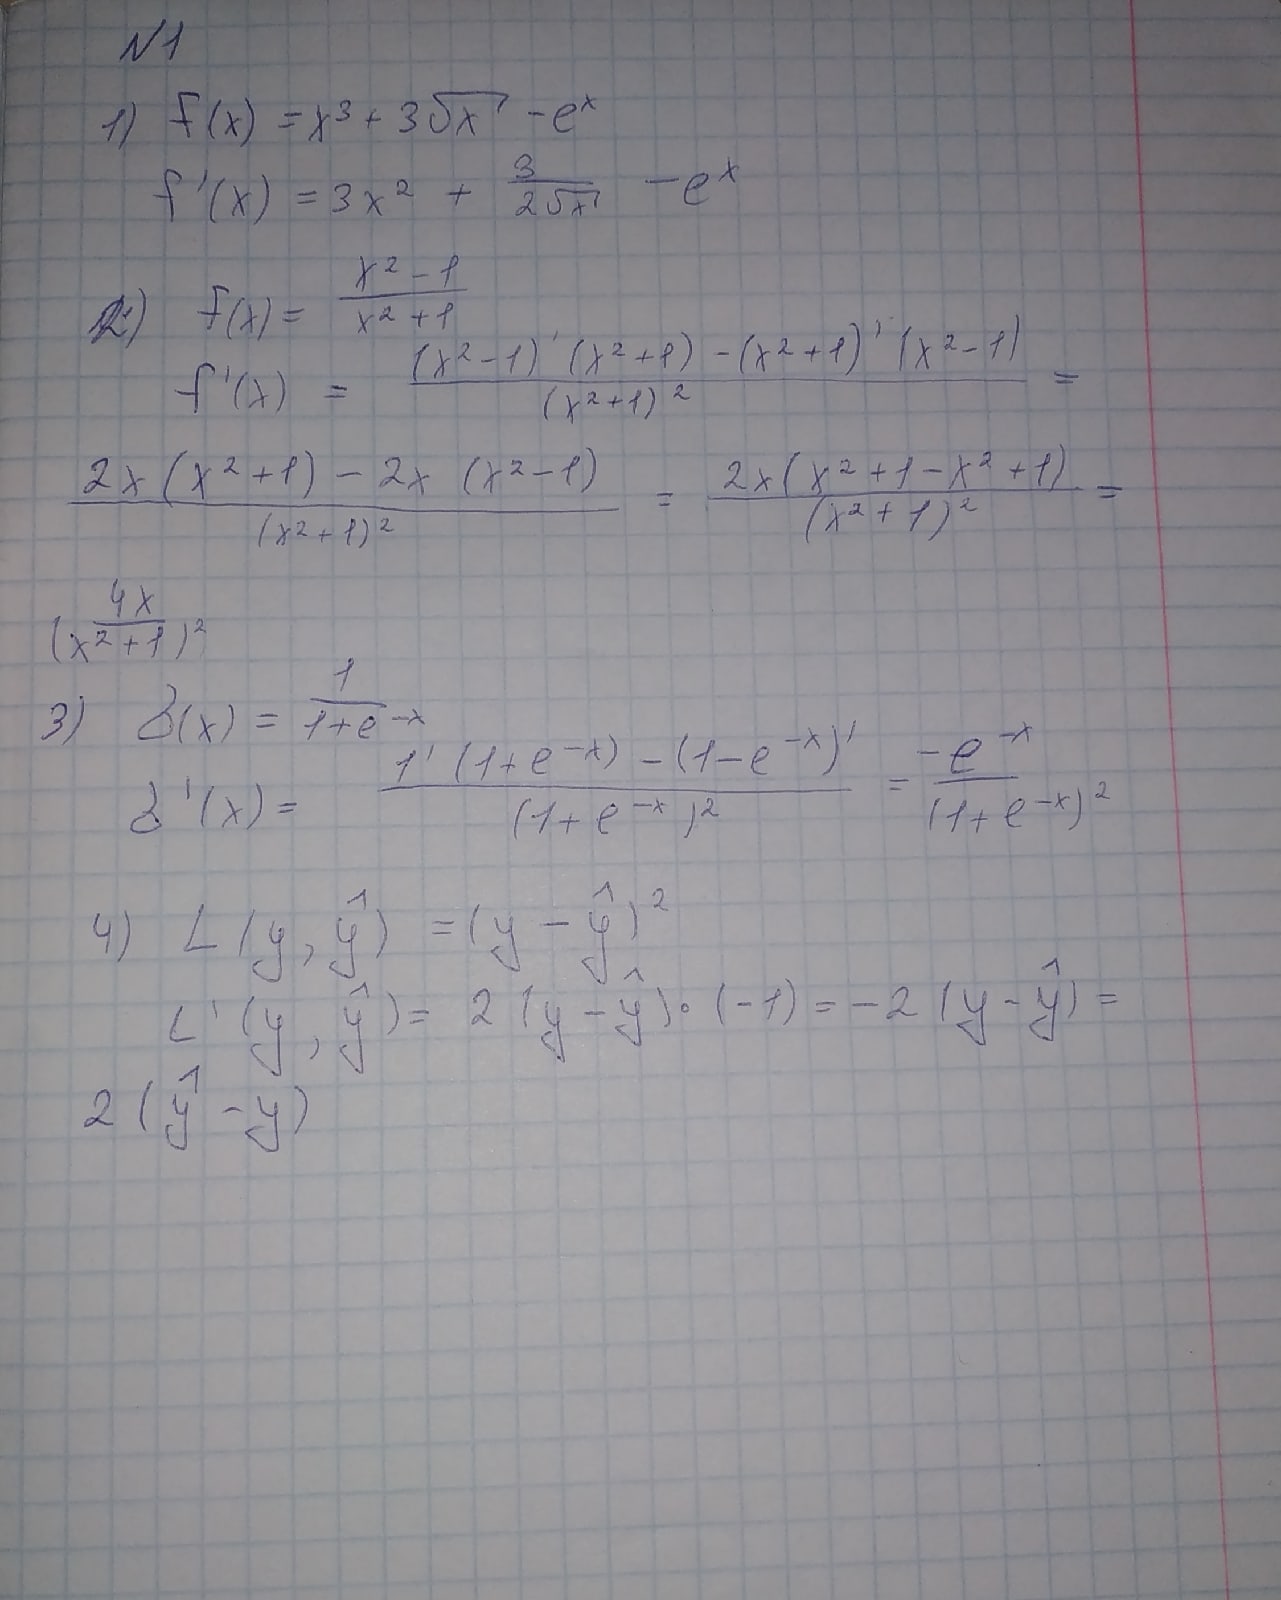 N1
1) f(x) = x³ + 3√x - eˣ
f'(x) = 3x² + 3/(2√x) - eˣ
2) f(x) = (x² - 1)/(x² + 1)
f'(x) = ((x² - 1)'(x² + 1) - (x² + 1)'(x² - 1))/(x² + 1)² =
(2x(x² + 1) - 2x(x² - 1))/(x² + 1)² = 2x(x² + 1 - x² + 1)/(x² + 1)² =
4x/(x² + 1)²
3) δ(x) = 1/(1 + e⁻ˣ)
δ'(x) = (1'(1 + e⁻ˣ) - (1 - e⁻ˣ)')/(1 + e⁻ˣ)² = -e⁻ˣ/(1 + e⁻ˣ)²
4) L(y, ŷ) = (y - ŷ)²
L'(y, ŷ) = 2(y - ŷ)·(-1) = -2(y - ŷ) =
2(ŷ - y)